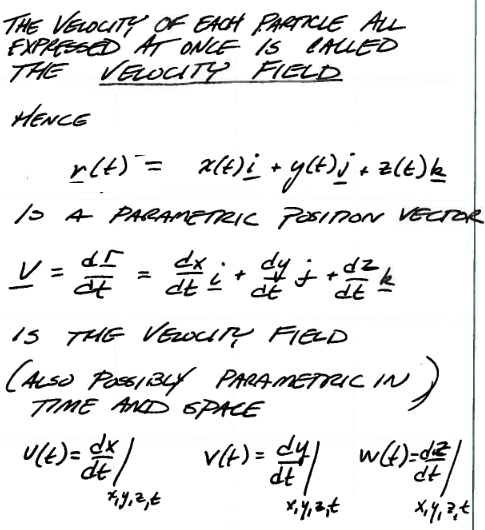 THE VELOCITY OF EACH PARTICLE ALL
EXPRESSED AT ONCE IS CALLED
THE VELOCITY FIELD
HENCE
r(t) = x(t)i + y(t)j + z(t)k
IS A PARAMETRIC POSITION VECTOR
V = dr/dt = dx/dt i + dy/dt j + dz/dt k
IS THE VELOCITY FIELD
(ALSO POSSIBLY PARAMETRIC IN
TIME AND SPACE)
u(t) = dx/dt |x,y,z,t v(t) = dy/dt |x,y,z,t w(t) = dz/dt |x,y,z,t